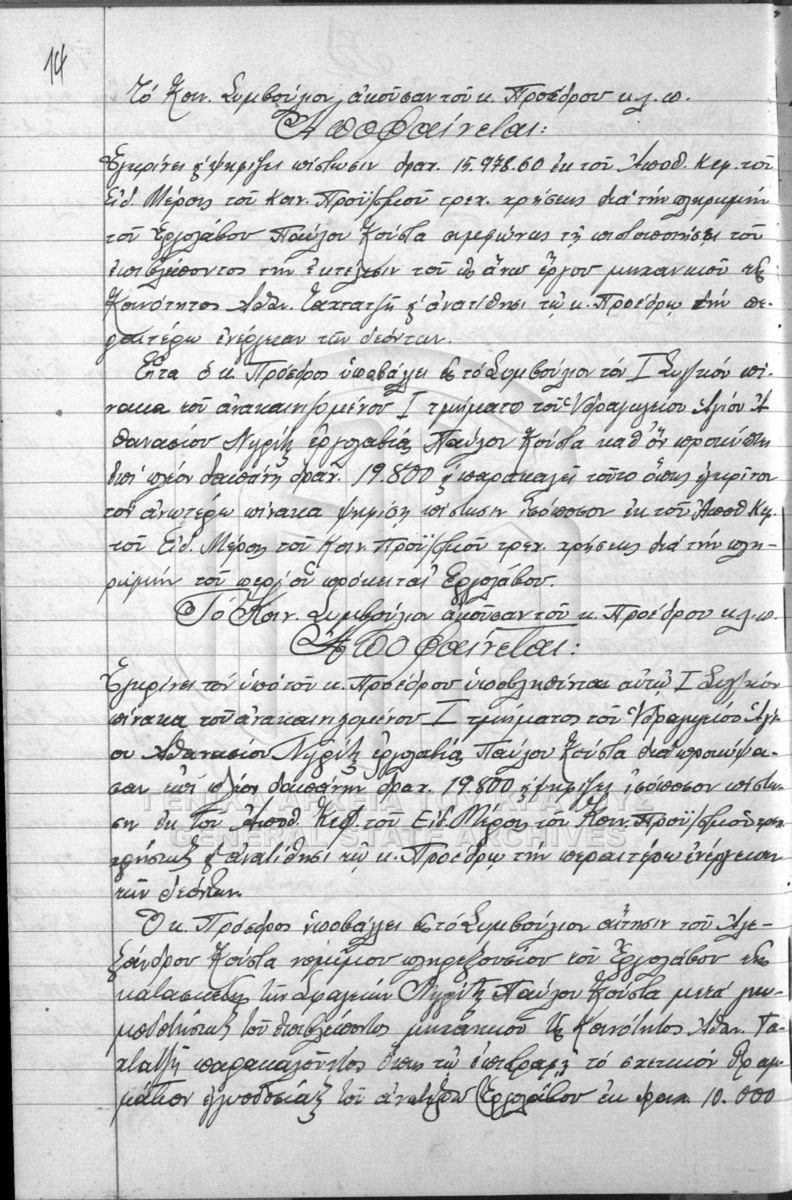 14
Τό Κοιν. Συμβούλιον, ἀκοῦσαν τοῦ κ. Προέδρου κ.λ.π.
Ἀποφαίνεται:
Ἐγκρίνει κ ψηφίζει πίστωσιν δραχ. 15.978.60 ἐκ τοῦ Ἀποθ. Κεφ. τοῦ
Εἰδ. Μέρους τοῦ Κοιν. Προϋ/σμοῦ τρεχ. χρήσεως διά τήν πληρωμήν
τοῦ Ἐργολάβου Παύλου Κούστα συμφώνως τῇ πιστοποιήσει τοῦ
ἐπιβλέποντος τήν ἐκτέλεσιν τοῦ ὡς ἄνω ἔργου μηχανικοῦ τῆς
Κοινότητος Ἀθαν. Ταχτατζῆ κ ἀνατίθησι τῷ κ. Προέδρῳ τήν πε-
ραιτέρω ἐνέργειαν τῶν δεόντων.
Εἶτα ὁ κ. Πρόεδρος ὑποβάλλει εἰς τό Συμβούλιον τόν Ι Συγ/κόν πί-
νακα τοῦ ἀνακαινιζομένου Ι τμήματος τοῦ Ὑδραγωγείου Ἁγίου Ἀ-
θανασίου Νιγρίτης ἐργολαβίας Παύλου Κούστα καθ' ὅν προκύπτει
ἐπί πλέον δαπάνη δραχ. 19.800 κ παρακαλεῖ τοῦτο ὅπως ἐγκρῖνον
τόν ἀνωτέρω πίνακα ψηφίσῃ πίστωσιν ἰσόποσον ἐκ τοῦ Ἀποθ. Κεφ.
τοῦ Εἰδ. Μέρους τοῦ Κοιν. Προϋ/σμοῦ τρεχ. χρήσεως διά τήν πλη-
ρωμήν τοῦ περί οὗ πρόκειται Ἐργολάβου.
Τό Κοιν. Συμβούλιον ἀκοῦσαν τοῦ κ. Προέδρου κ.λ.π.
Ἀποφαίνεται:
Ἐγκρίνει τόν ὑπό τοῦ κ. Προέδρου ὑποβληθέντα αὐτῷ Ι Συγ/κόν
πίνακα τοῦ ἀνακαινιζομένου Ι τμήματος τοῦ Ὑδραγωγείου Ἁγί-
ου Ἀθανασίου Νιγρίτης ἐργολαβίας Παύλου Κούστα διά προκύψα-
σαν ἐπί πλέον δαπάνην δραχ. 19.800 κ ψηφίζει ἰσόποσον πίστω-
σιν ἐκ τοῦ Ἀποθ. Κεφ. τοῦ Εἰδ. Μέρους τοῦ Κοιν. Προϋ/σμοῦ τρεχ.
χρήσεως κ ἀνατίθησι τῷ κ. Προέδρῳ τήν περαιτέρω ἐνέργειαν
τῶν δεόντων.
Ὁ κ. Πρόεδρος ὑποβάλλει εἰς τό Συμβούλιον αἴτησιν τοῦ Ἀλε-
ξάνδρου Κούστα νομίμου πληρεξουσίου τοῦ Ἐργολάβου τῆς
κατασκευῆς τῶν Νιγρίτης Παύλου Κούστα μετά γνω-
μοδοτήσεως τοῦ ἐπιβλέποντος μηχανικοῦ τῆς Κοινότητος Ἀθαν. Τα-
χτατζῆ παρακαλοῦντος ὅπως τῷ ἐπιστραφῇ τό σχετικόν Γραμ-
μάτιον ἐγγυοδοσίας τοῦ ἀνωτέρω Ἐργολάβου ἐκ δραχ. 10.000
ΓΕΝΙΚΑ ΑΡΧΕΙΑ ΤΟΥ ΚΡΑΤΟΥΣ
GENERAL STATE ARCHIVES